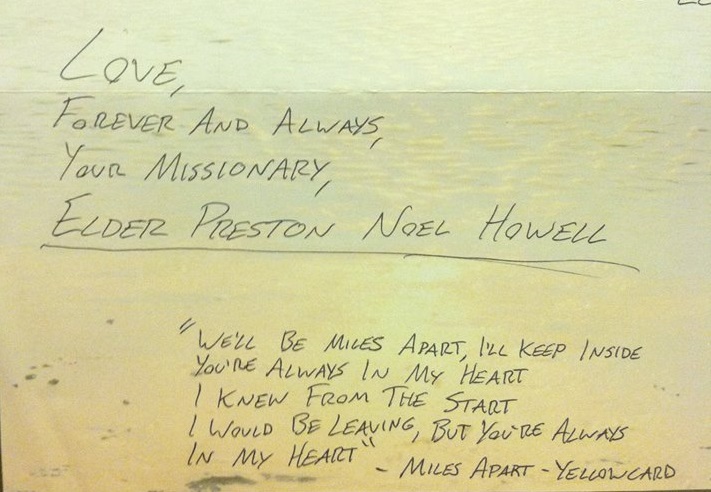 LOVE,
FOREVER AND ALWAYS,
YOUR MISSIONARY,
ELDER PRESTON NOEL HOWELL
"WE'LL BE MILES APART, I'LL KEEP INSIDE
YOU'RE ALWAYS IN MY HEART
I KNEW FROM THE START
I WOULD BE LEAVING, BUT YOU'RE ALWAYS
IN MY HEART"
- MILES APART - YELLOWCARD